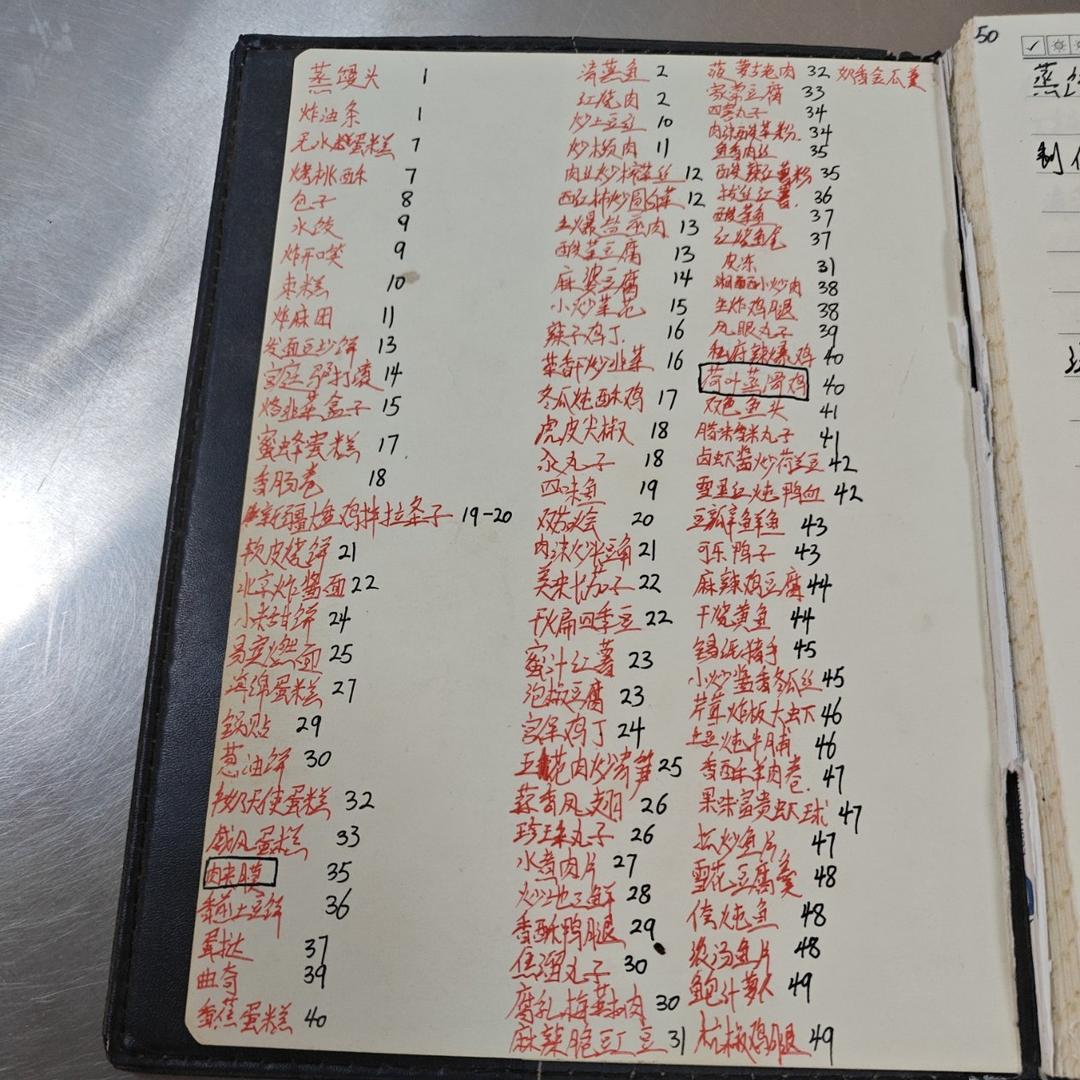 蒸馒头 1
炸油条 1
无水蛋糕 7
烤桃酥 7
包子 8
水饺 9
炸开口笑 9
枣糕 10
炸麻团 11
发面豆沙饼 13
14
烙韭菜盒子 15
蜜蜂蛋糕 17
香肠卷 18
新疆大盘鸡拌拉条子 19-20
软皮烧饼 21
北京炸酱面 22
小米甜饼 24
燃面 25
海绵蛋糕 27
锅贴 29
葱油饼 30
天使蛋糕 32
戚风蛋糕 33
肉夹膜 35
香煎土豆饼 36
蛋挞 37
曲奇 39
香蕉蛋糕 40
清蒸鱼 2
红烧肉 2
炒土豆丝 10
炒板肉 11
肉丝炒榨菜丝 12
西红柿炒圆白菜 12
生爆盐煎肉 13
酸菜豆腐 13
麻婆豆腐 14
小炒菜花 15
辣子鸡丁 16
茶香干炒韭菜 16
冬瓜炖酥鸡 17
虎皮尖椒 18
汆丸子 18
四味鱼 19
20
肉沫炒米豆角 21
美味长茄子 22
干煸四季豆 22
蜜汁红薯 23
泡椒豆腐 23
宫保鸡丁 24
五花肉炒青笋 25
蒜香凤翅 26
珍珠丸子 26
水煮肉片 27
炒地三鲜 28
香酥鸭腿 29
焦溜丸子 30
腐乳梅菜扣肉 30
麻辣脆豇豆 31
菠萝古老肉 32
家常豆腐 33
四喜丸子 34
肉沫酸菜粉 34
鱼香肉丝 35
酸辣红薯粉 35
拔丝红薯 36
酸菜鱼 37
红烧鱼尾 37
皮冻 31
湘西小炒肉 38
生炸鸡腿 38
凤眼丸子 39
私府辣爆鸡 40
荷叶蒸滑鸡 40
双色鱼头 41
腊味糯米丸子 41
卤虾酱炒荷兰豆 42
雪里红炖鸭血 42
豆瓣鲜鱼 43
可乐鸭子 43
麻辣鸡豆腐 44
干烧黄鱼 44
锡纸猪手 45
小炒酱香冬瓜丝 45
芹茸炸板大虾 46
土豆炖牛腩 46
香酥羊肉卷 47
果味富贵虾球 47
炒鱼片 47
雪花豆腐羹 48
侉炖鱼 48
浓汤鱼片 48
鲍汁萝卜 49
杭椒鸡腿 49
奶香金瓜羹
50
蒸
制作